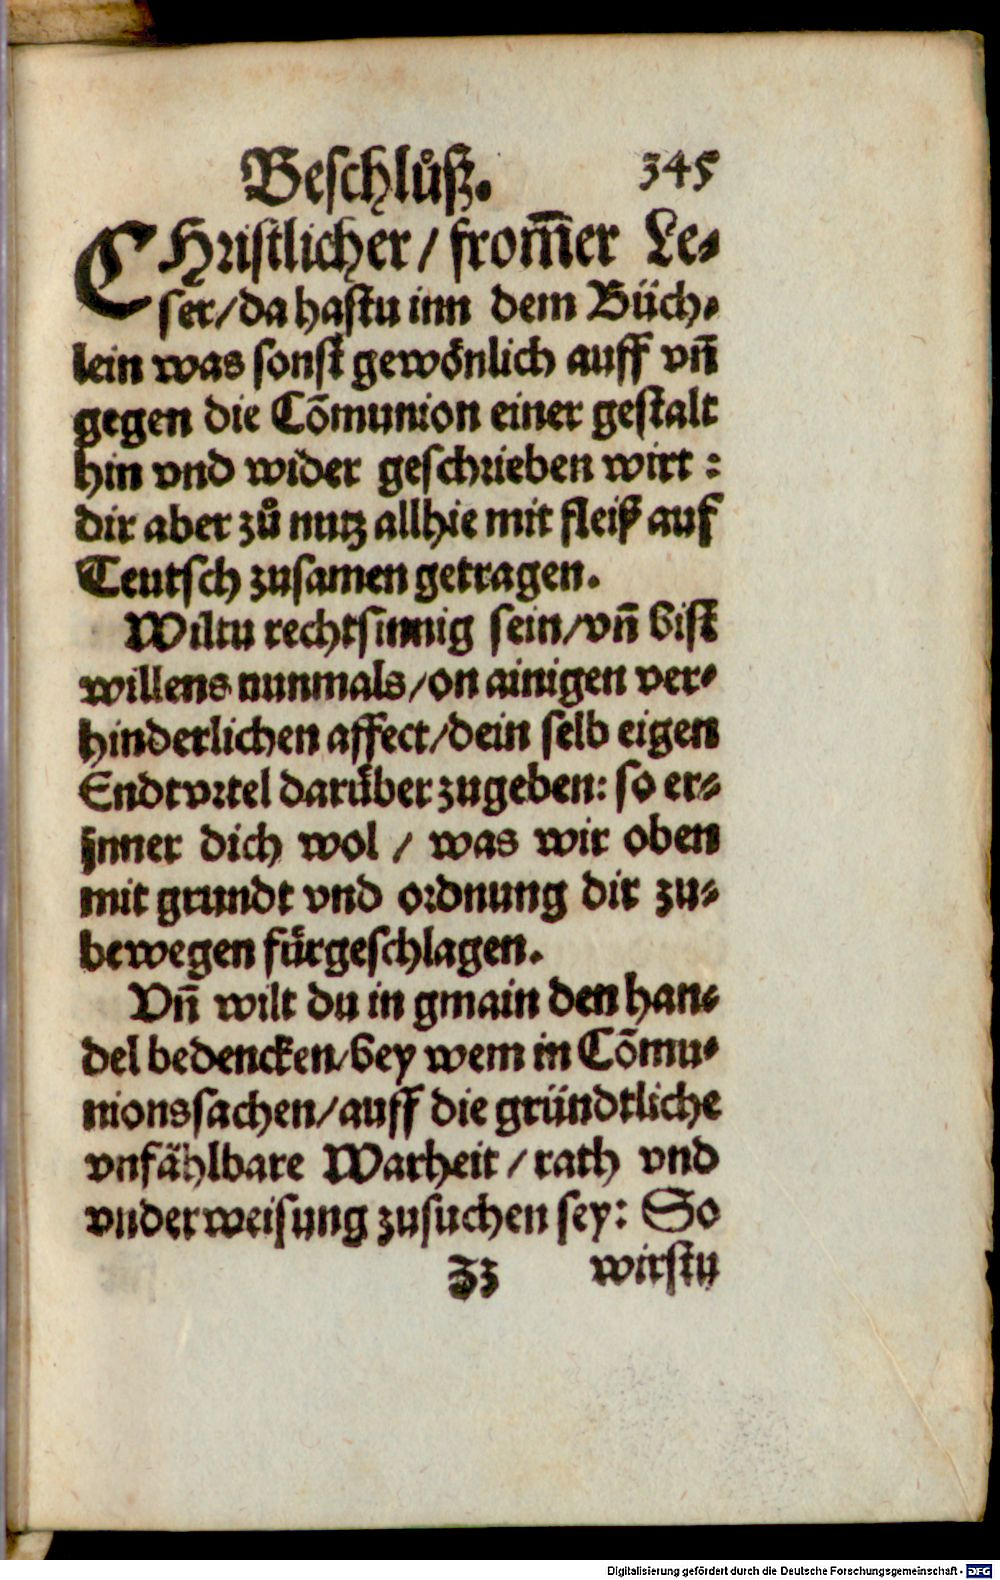 Beschlůß. 345
CHristlicher / from̅er Le-
ser/da hastu inn dem Büch-
lein was sonst gewönlich auff vn̅
gegen die Cõmunion einer gestalt
hin vnd wider geschrieben wirt :
dir aber zů nutz allhie mit fleiß auf
Teutsch zusamen getragen.
Wiltu rechtsinnig sein/vn̅ bist
willens nunmals/on ainigen ver-
hinderlichen affect/dein selb eigen
Endtvrtel darüber zugeben: so er-
inner dich wol / was wir oben
mit grundt vnd ordnung dir zu-
bewegen fürgeschlagen.
Vn̅ wilt du in gmain den han-
del bedencken/bey wem in Cõmu-
nionssachen/auff die gründtliche
vnfählbare Warheit / rath vnd
vnderweisung zusuchen sey: So
Zz wirstu
Digitalisierung gefördert durch die Deutsche Forschungsgemeinschaft - DFG